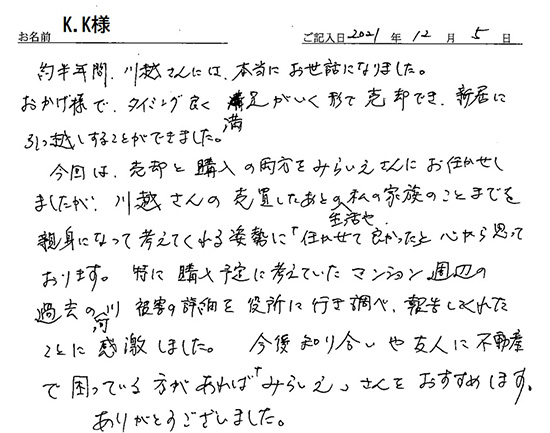 お名前 K.K様 ご記入日 2021 年 12 月 5 日
約半年間、川越さんには、本当にお世話になりました。
おかげ様で、タイミング良く満足がいく形で売却でき、新居に
引っ越しすることができました。
今回は、売却と購入の両方をみらいえさんにお任せし
ましたが、川越さんの売買したあとの生活や私の家族のことまでを
親身になって考えてくれる姿勢に「任かせて良かったと心から思って
おります。特に購入予定に考えていたマンション周辺の
過去の河川被害の詳細を役所に行き調べ、報告してくれた
ことに感激しました。今後知り合いや友人に不動産
で困っている方があれば「みらいえ」さんをおすすめします。
ありがとうございました。